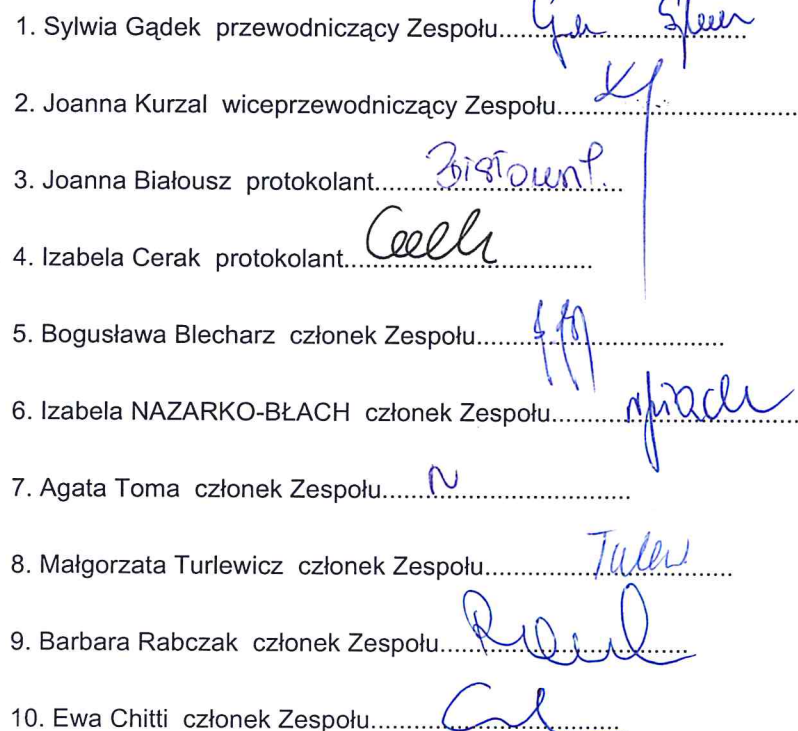 1. Sylwia Gądek przewodniczący Zespołu.....
2. Joanna Kurzal wiceprzewodniczący Zespołu.....
3. Joanna Białousz protokolant.....
4. Izabela Cerak protokolant.....
5. Bogusława Blecharz członek Zespołu.....
6. Izabela NAZARKO-BŁACH członek Zespołu.....
7. Agata Toma członek Zespołu.....
8. Małgorzata Turlewicz członek Zespołu.....
9. Barbara Rabczak członek Zespołu.....
10. Ewa Chitti członek Zespołu.....